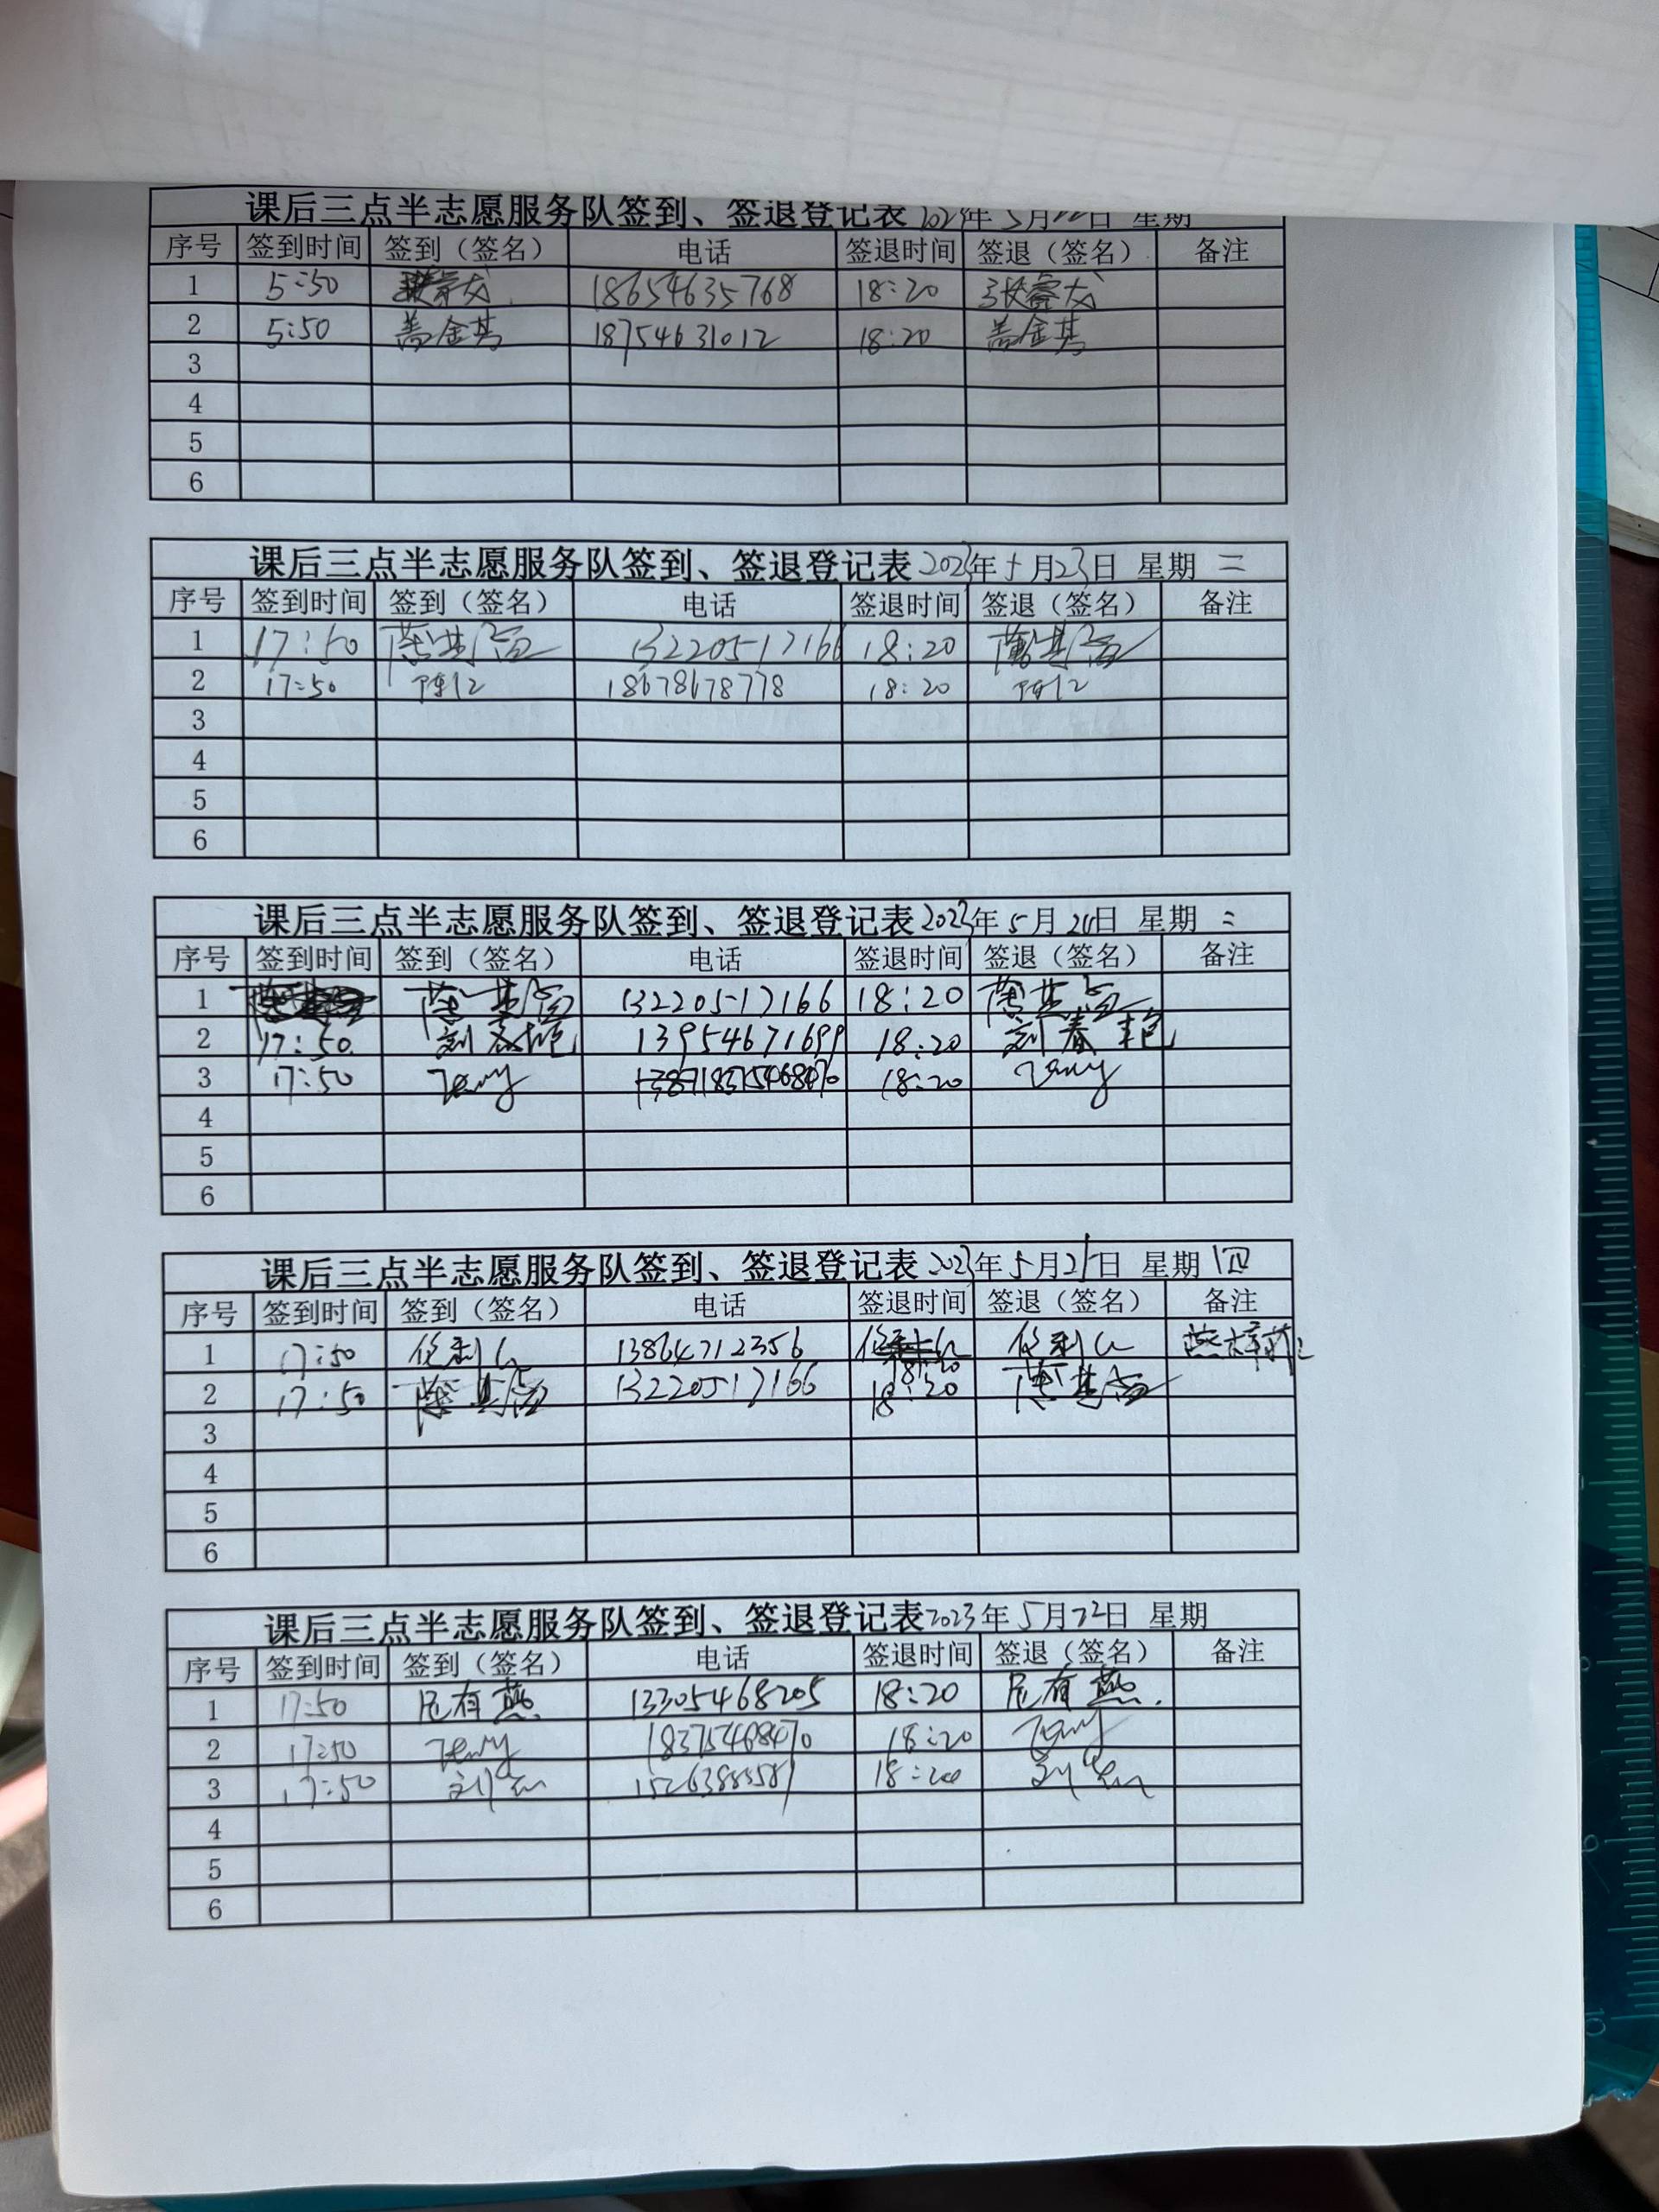 课后三点半志愿服务队签到、签退登记表 2023年5月22日 星期
序号 签到时间 签到（签名） 电话 签退时间 签退（签名） 备注
1 5:50 18654635768 18:20 张睿戈
2 5:50 盖金其 18754631012 18:20 盖金其
3
4
5
6
课后三点半志愿服务队签到、签退登记表 2023年5月23日 星期 二
序号 签到时间 签到（签名） 电话 签退时间 签退（签名） 备注
1 17:50 13220517166 18:20
2 17:50 18678678778 18:20
3
4
5
6
课后三点半志愿服务队签到、签退登记表 2023年5月24日 星期 二
序号 签到时间 签到（签名） 电话 签退时间 签退（签名） 备注
1 13220517166 18:20
2 17:50. 刘春艳 13954671699 18:20 刘春艳
3 17:50 18:20
4
5
6
课后三点半志愿服务队签到、签退登记表 2023年5月25日 星期 四
序号 签到时间 签到（签名） 电话 签退时间 签退（签名） 备注
1 17:50 13864712356 18:20
2 17:50 13220517166 18:20
3
4
5
6
课后三点半志愿服务队签到、签退登记表 2023年5月22日 星期
序号 签到时间 签到（签名） 电话 签退时间 签退（签名） 备注
1 17:50 尼有燕 13305468205 18:20 尼有燕.
2 17:50 18375468470 18:20
3 17:50 18:20
4
5
6
10